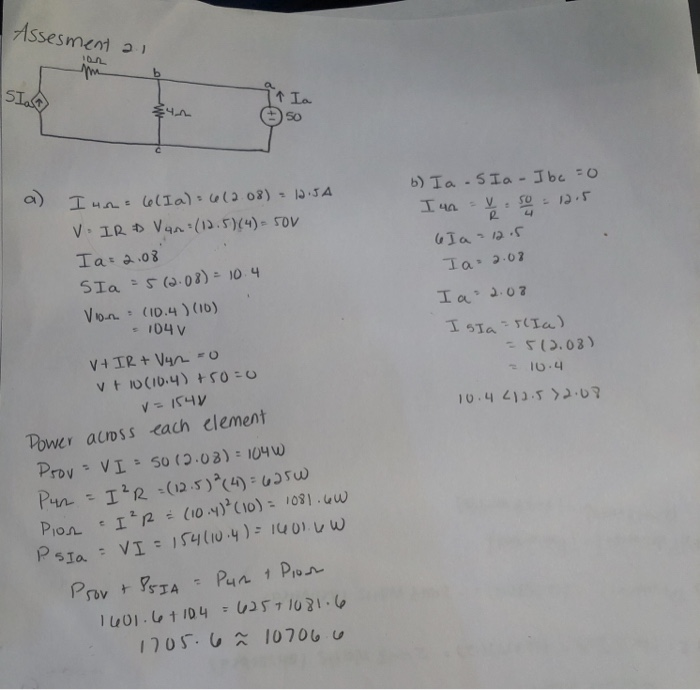 Assesment 2.1
10Ω
b
a
5Ia
4Ω
Ia
50
c
a) I4Ω = 6(Ia) = 6(2.08) = 12.5A
V = IR ⇒ V4Ω = (12.5)(4) = 50V
Ia = 2.08
5Ia = 5(2.08) = 10.4
V10Ω = (10.4)(10)
= 104V
V + IR + V4Ω = 0
V + 10(10.4) + 50 = 0
V = 154V
Power across each element
P50V = VI = 50(2.08) = 104W
P4Ω = I²R = (12.5)²(4) = 625W
P10Ω = I²R = (10.4)²(10) = 1081.6W
P5Ia = VI = 154(10.4) = 1601.6W
P50V + P5IA = P4Ω + P10Ω
1601.6 + 104 = 625 + 1081.6
1705.6 ≈ 10706.6
b) Ia - 5Ia - Ibc = 0
I4Ω = V/R = 50/4 = 12.5
6Ia = 12.5
Ia = 2.08
Ia = 2.08
I5Ia = 5(Ia)
= 5(2.08)
= 10.4
10.4 < 12.5 > 2.08